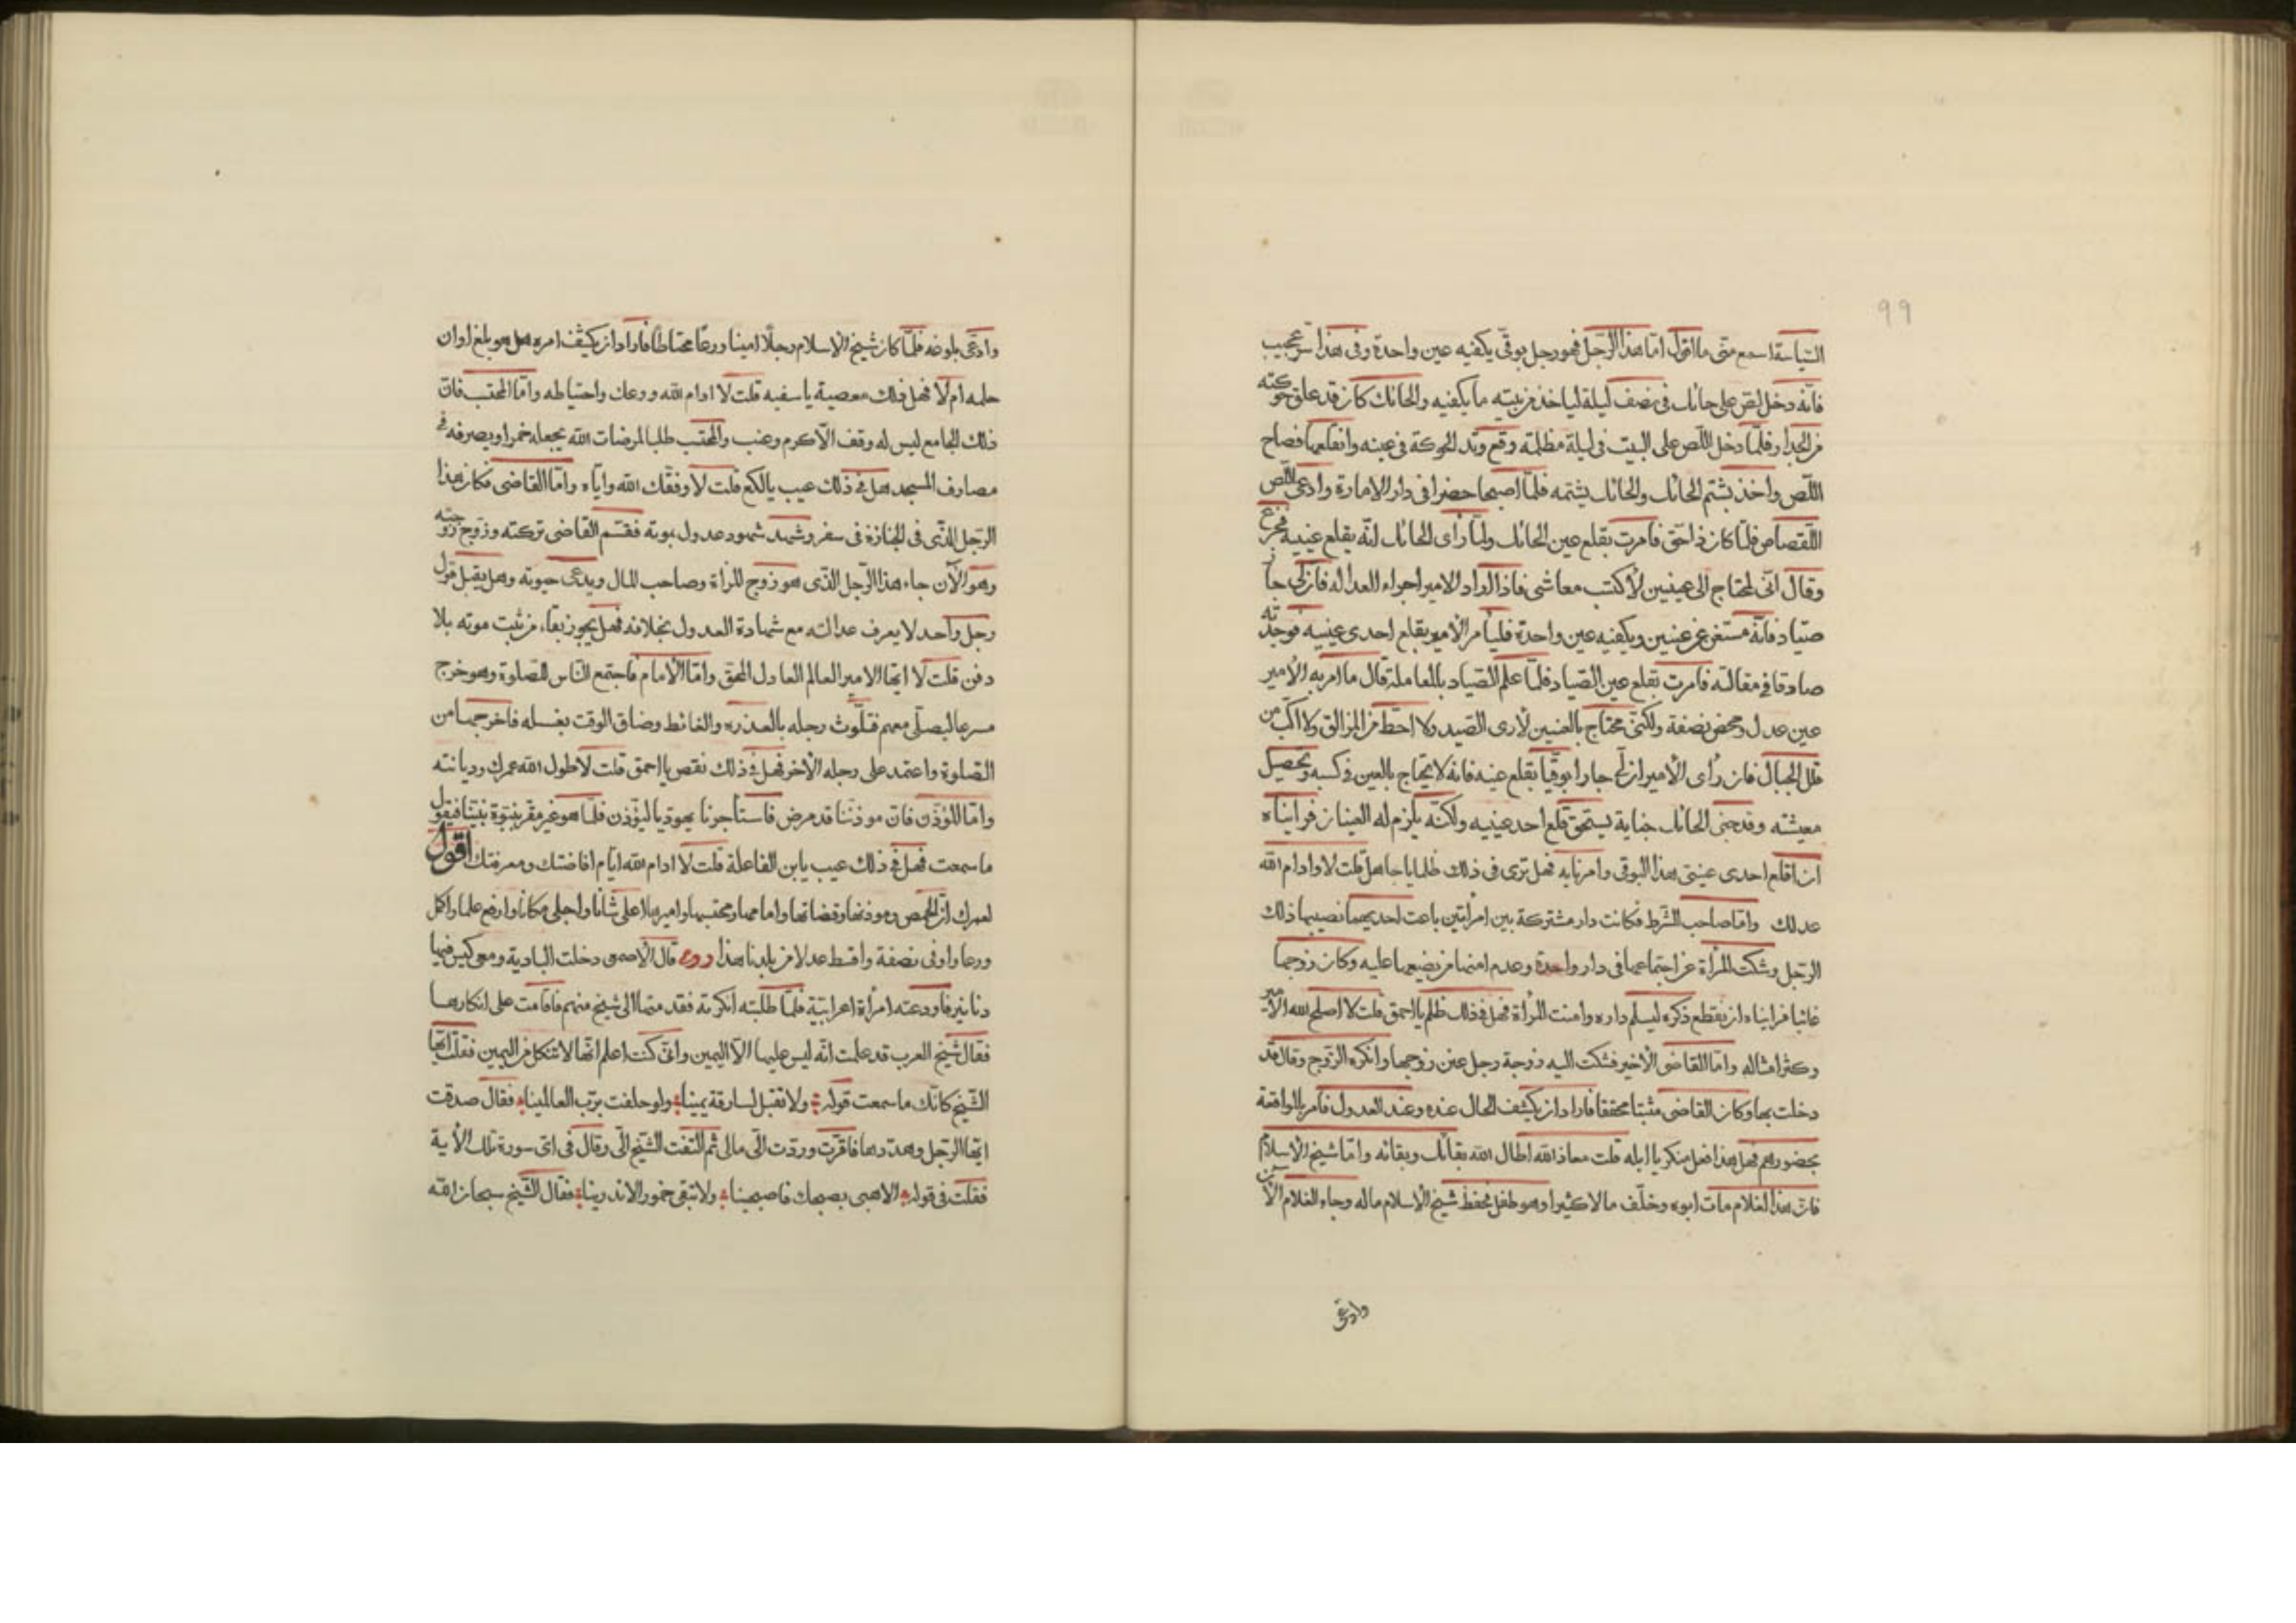 ٩٩
السّياسة اسمع منّى ما اقول امّا هذا الرّجل فهو رجل بوقّى يكفيه عين واحدة وفى هذا سرّ عجيب
فانّه دخل لصّ على حائك فى نصف ليلة لياخذ من بيته ما يكفيه والحائك كان قد علق حوكته
من الجدار فلمّا دخل اللّص على البيت فى ليلة مظلمة وقع وتد الحوكة فى عينه وانقلعها فصاح
اللّص واخذ يشتم الحائك والحائك يشتمه فلمّا اصبحا حضرا فى دار الامارة وادعى اللّص
القصاص فلمّا كان ذا حق فامرت بقلع عين الحائك ولمّا رأى الحائك انّه يقلع عينيه فجزع
وقال انّى لمحتاج الى عينين لأكتسب معاشى فاذا اراد الامير اجراء العدالة فان لى جارا
صيّاد فانّه مستغن عن عينين ويكفيه عين واحدة فليأمر الأمير بقلع احدى عينيه فوجدته
صادقا فى مقالته فامرت بقلع عين الصّياد فلمّا علم الصّياد بالمعاملة قال ما امر به الأمير
عين عدل ومحض نصفة ولكنّى محتاج بالعينين لأرى الصّيد ولا احطّ من المزالق ولا اكبّ من
قلل الجبال فان رأى الأمير ان لى جارا بوقيّا يقلع عينه فانه لا يحتاج بالعين فى كسبه وتحصيل
معيشته وقد جنى الحائك جناية يستحق قلع احد عينيه ولكنّه يلزم له العينان فرايناه
ان اقلع احدى عينى هذا البوقى وامرنا به فهل ترى فى ذلك ظلما يا جاهل قلت لا وادام الله
عدلك وامّا صاحب الشّرط فكانت دار مشتركة بين امرأتين باعت احديهما نصيبها ذلك
الرّجل وشكت المرأة عن اجتماعهما فى دار واحدة وعدم امنها من بضعها عليه وكان زوجها
غائبا فراينا ان نقطع ذكره ليسلم داره وامنت المرأة فهل فى ذلك ظلم يا احمق قلت لا اصلح الله الأمير
وكثر امثاله وامّا القاضى الأخير فشكت اليه زوجة رجل عنن زوجها وانكره الزّوج وقال قد
دخلت بها وكان القاضى مثبتا محققا فاراد ان يكشف الحال عنده وعند العدول فامر بالمواقعة
بحضورهم فهل هذا فعل منكر يا ابله قلت معاذ الله اطال الله بقائك وبقائه وامّا شيخ الاسلام
فانّ هذا الغلام مات ابوه وخلّف مالا كثيرا وهو طفل فحفظ شيخ الإسلام ماله وجاء الغلام الآن
وادعى
وادعى بلوغه فلمّا كان شيخ الاسلام رجلا امينا ورعا محتاطا فاراد ان يكشف امره هل هو بلغ اوان
حلمه ام لا فهل ذلك معصية يا سفيه قلت لا ادام الله ورعك واحتياطه وامّا المحتسب فانّ
ذلك الجامع ليس له وقف الّا كرم وعنب والمحتسب طلبا لمرضات الله يجعله خمرا ويصرفه فى
مصارف المسجد هل فى ذلك عيب يا لكع قلت لا وفقك الله وايّاه وامّا القاضى فكان هذا
الرّجل الذّى فى الجنازة فى سفر وشهد شهود عدول بموته فقسّم القاضى تركته وزوّج زوجته
وهو الآن جاء هذا الرّجل الذّى هو زوج المرأة وصاحب المال ويدعى حيوته وهل يقبل قول
رجل واحد لا يعرف عدالته مع شهادة العدول بخلافه فهل يجوز بقاء من ثبت موته بلا
دفن قلت لا ايّها الامير العالم العادل المحقّ وامّا الأمام فاجتمع النّاس للصلوة وهو خرج
مسرعا ليصلّى معهم فتلوّث رجله بالعذره والغائط وضاق الوقت بغسله فاخرجها من
الصّلوة واعتمد على رجله الأخر فهل فى ذلك نقص يا احمق قلت لا طول الله عمرك وديانته
وامّا المؤذّن فانّ موذّننا قد مرض فاستأجرنا يهوديا ليؤذن فلمّا هو غير مقر بنبوة نبيّنا فيقول
ما سمعت فهل فى ذلك عيب يا ابن الفاعلة قلت لا ادام الله ايّام افاضتك ومعرفتك اقول
لعمرك انّ الحمص وموذنها وقضاتها وامامها ومحتسبها واميرها لاعلى شأنا واجلى مكانا وارفع علما واكمل
ورعا واوفى نصفة واقسط عدلا من بلدنا هذا روى قال الأصمعى دخلت البادية ومعى كيس فيها
دنانير فاودعته امرأة اعرابيّة فلمّا طلبته انكرته فقدمتها الى شيخ منهم فاقامت على انكارها
فقال شيخ العرب قد علمت انّه ليس عليها الّا اليمين وانّى كنت اعلم انّها لا تنكل من اليمين فقلت ايّها
الشّيخ كانّك ما سمعت قوله ولا تقبل لسارقة يمينا ولو حلفت بربّ العالمينا فقال صدقت
ايّها الرّجل وهدّدها فاقرّت وردّت الىّ مالى ثم التفت الشّيخ الىّ وقال فى اى سورة تلك الأية
فقلت فى قوله الا هبى بصحنك فاصبحينا ولا تبقى خمور الاندرينا فقال الشّيخ سبحان الله